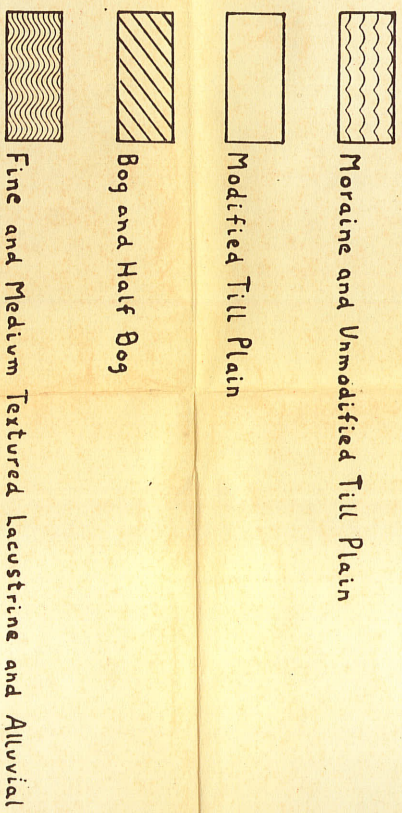 Moraine and Unmodified Till Plain
Modified Till Plain
Bog and Half Bog
Fine and Medium Textured Lacustrine and Alluvial